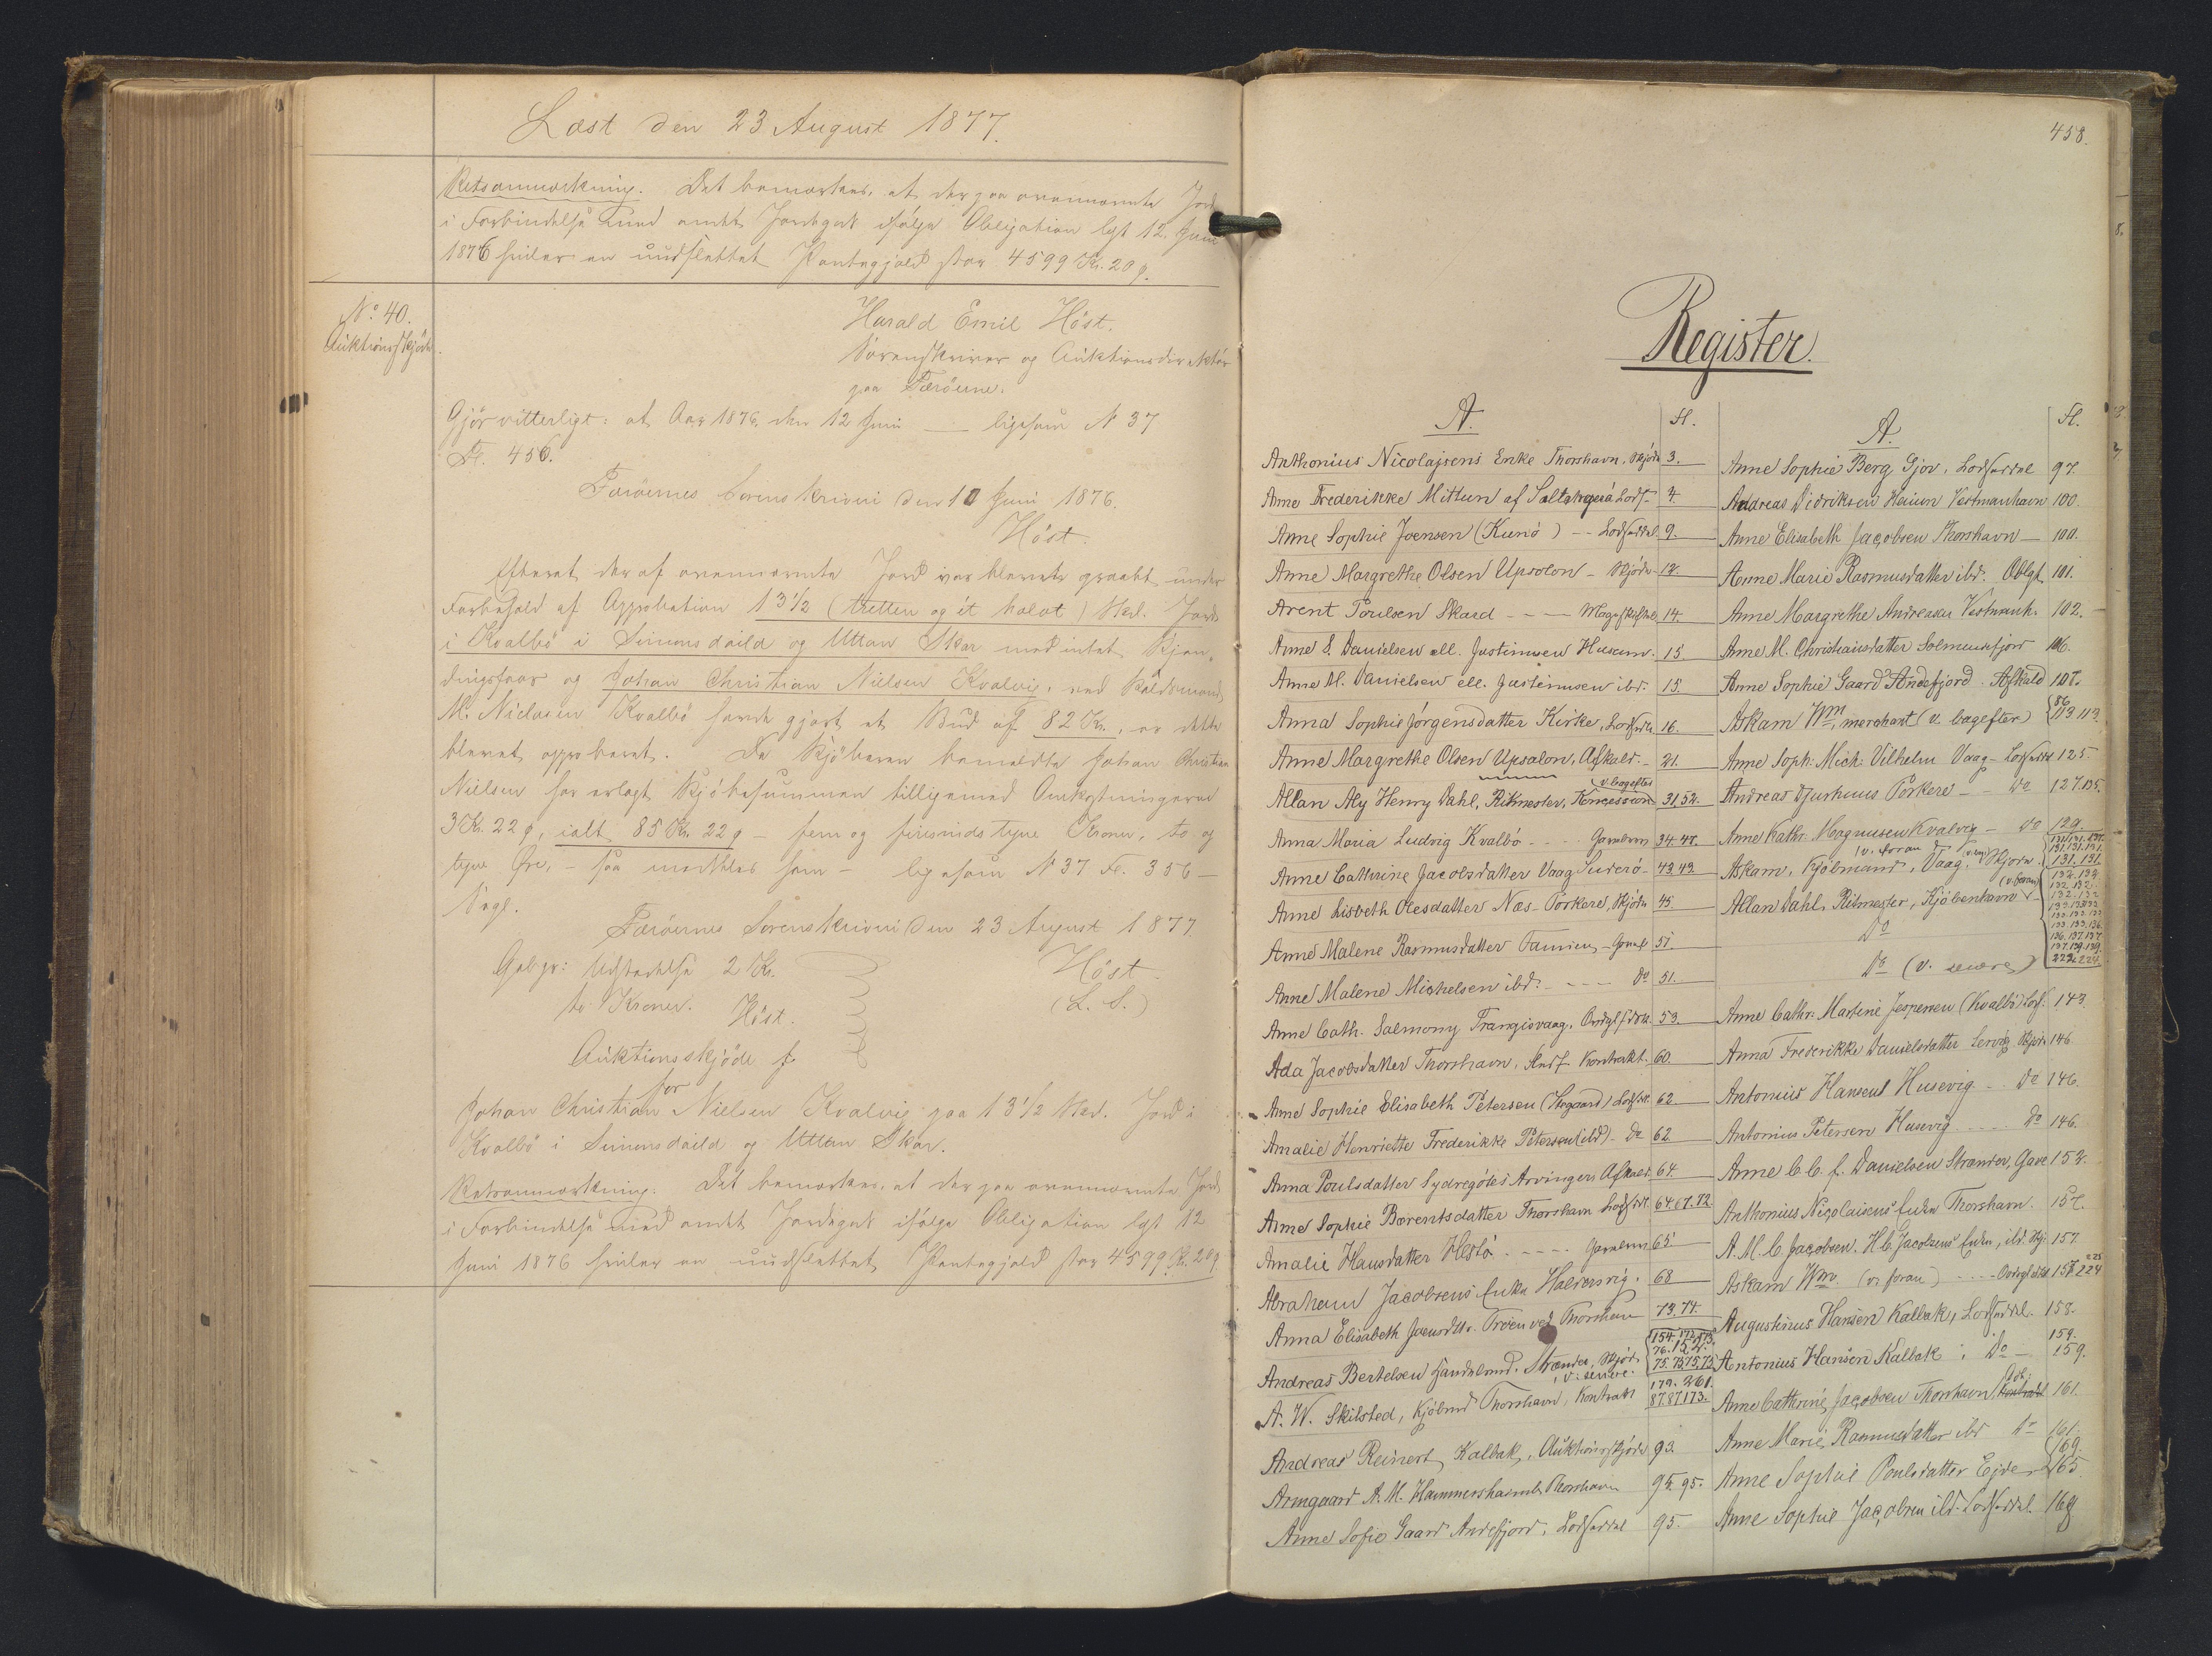 Læst den 23 August 1877.
Retsanmærkning. Det bemærkes, at der paa ovennævnte Jord
i Forbindelse med andet Jordegods ifølge Obligation lyst 12. Juni
1876 hviler en uudslettet Pantegjæld stor 4599 Kr. 20 ø.
No. 40.
Auktionsskjöde.
Harald Emil Höst.
Sorenskriver og Auktionsdirektör
paa Færöerne.
Gjör vitterligt: at Aar 1876, den 12 Juni — ligesom N 37
Fl. 456.
Færöernes Sorenskriveri den 10 Juni 1876.
Höst.
Efterat der af ovennævnte Jord var blevet opraabt under
Forbehold af Approbation 13 1/2 (tretten og et halvt) Skd. Jord
i Kvalbö i Simmsdaild og Uttan Skar med intet Skjæn-
dingsfaar og Johan Christian Nielsen Kvalvig, ved
M. Niclasen Kvalbö havde gjort et Bud af 82 Kr., er dette
blevet approberet. Da Kjöberen bemeldte Johan Christian
Nielsen har erlagt Kjöbesummen tilligemed Omkostningerne
3 Kr. 22 ø, ialt 85 Kr. 22 ø — fem og firsindstyve Kroner, to og
tyve Øre, — saa meddeles ham — ligesom N 37 Fl. 356 —
Segl.
Færöernes Sorenskriveri den 23 August 1877
Gebyr: Udstedelse 2 Kr. Höst.
to Kroner. Höst. (L. S.)
Auktionsskjöde f.
for
Johan Christian Nielsen Kvalvig paa 13 1/2 Skd. Jord i
Kvalbö i Simmsdaild og Uttan Skar.
Retsanmærkning. Det bemærkes, at der paa ovennævnte Jord
i Forbindelse med andet Jordegods ifølge Obligation lyst 12
Juni 1876 hviler en uudslettet Pantegjæld stor 4599 Kr. 20 ø
458.
Register.
A. Fl.
Anthonius Nicolajsens Enke Thorshavn, Skjöde 3.
Anne Frederikke Mittun af Saltangará Lods. 4.
Anne Sophie Joensen (Kunö) -- Lodseddel. 9.
Anne Margrethe Olsen Upsolon - Skjöde - 12.
Arent Poulsen Skaard - - - Mageskifte 14.
Anne S. Danielsen ell. Justinusen Husum. 15.
Anne M. Danielsen ell. Justinusen ibd. 15.
Anna Sophie Jörgensdatter Kirke, Lodseddel 16.
Anne Margrethe Olsen Upsalon, Afkald. - 21.
v. bagefter
Allan Aly Henry Dahl, Ritmester, Koncession 31, 52.
Anna Maria Ludvig Kvalbö - - - Gavebrev 34. 47.
Anne Cathrine Jacobsdatter Vaag Suderö - 43. 43.
Anne Lisbeth Olesdatter Næs - Porkere, Skjöde 45.
Anne Malene Rasmusdatter Famien - Gavebr 51.
Anne Malene Michelsen ibd. - - - - Do 51.
Anne Cath. Salmony Trangisvaag, 53.
Ada Jacobsdatter Thorshavn, Kontrakt. 60.
Anne Sophie Elisabeth Petersen (Hygaard) Lodsedd. 62
Amalie Henriette Frederikke Petersen (ibd) - Do 62
Anna Poulsdatter Sydregötes Arvingers Afkald. 64.
Anne Sophie Barentsdatter Thorshavn Lodsedl. 64. 67. 72.
Amalie Hansdatter Hestö - - - - - Gavebrev 65
Abraham Jacobsens Enke Haldersvig. 68
Anna Elisabeth Joensdttr. Troen ved Thorshavn 73. 74.
154. 172. 173.
76. 152.
Andreas Bertelsen Handelsmd. Strænder, Skjöde 75. 75. 75. 75.
v. senere.
179. 261.
A. W. Skibsted, Kjöbmd Thorshavn, Kontrakt 87. 87. 173.
Andreas Reinert, Kalbak, Auktionsskjöde 93.
Armgaard A. M. Hammershaimb Thorshavn 95. 95.
Anne Sofie Gaard Andefjord, Lodseddel 95.
A. Fl.
Anne Sophie Berg Gjov, Lodseddel 97.
Andreas Didriksen Heium Vestmanhavn 100.
Anne Elisabeth Jacobsen Thorshavn — 100.
Anne Marie Rasmusdatter ibd. Oblgt. 101.
Anne Margrethe Andreasen Vestmanh. 102.
Anne M. Christiansdatter Solmundefjord 106.
Anne Sophie Gaard Andefjord. Afkald 107.
86
Askam Wm, merchant (v. bagefter) 113 113.
Anne Soph: Mich: Vilhelm Vaag - Lodseddel 125.
Andreas Djurhuus Porkere - - Do 127. 135.
Anne Kathr. Magnusen Kvalvig - Do 129.
v. foran
Askam, Kjöbmand, Vaag. Skjöde 131. 131.
(v. foran)
Allan Dahl, Ritmester, Kjöbenhavn
Do
Do (v. senere)
Anne Cathr. Martine Jespersen (Kvalbö) Lods. 143.
Anna Frederikke Danielsdatter Lervig, Skjöde 146.
Antonius Hansens Husevig - Do 146.
Antonius Petersen Husevig - - - Do 146.
Anne C. C. f. Danielsen Strænder, Gave 152.
Anthonius Nicolaisens Enke Thorshavn. 157.
A. M. C. Jacobsen. H. C. Jacobsens Enke, ibd. Skj. 157
Askam Wm. (v. foran) - - - - 157. 224
Augustinus Hansen Kalbak, Lodseddel. 158.
159.
Antonius Hansen Kalbak, Do — 159.
Anne Cathrine Jacobsen Thorshavn 161.
Anne Marie Rasmusdatter ibd Do 161.
169.
Anne Sophie Poulsdatter Ejde 165.
Anne Sophie Jacobsen ibd. Lodseddel. 168